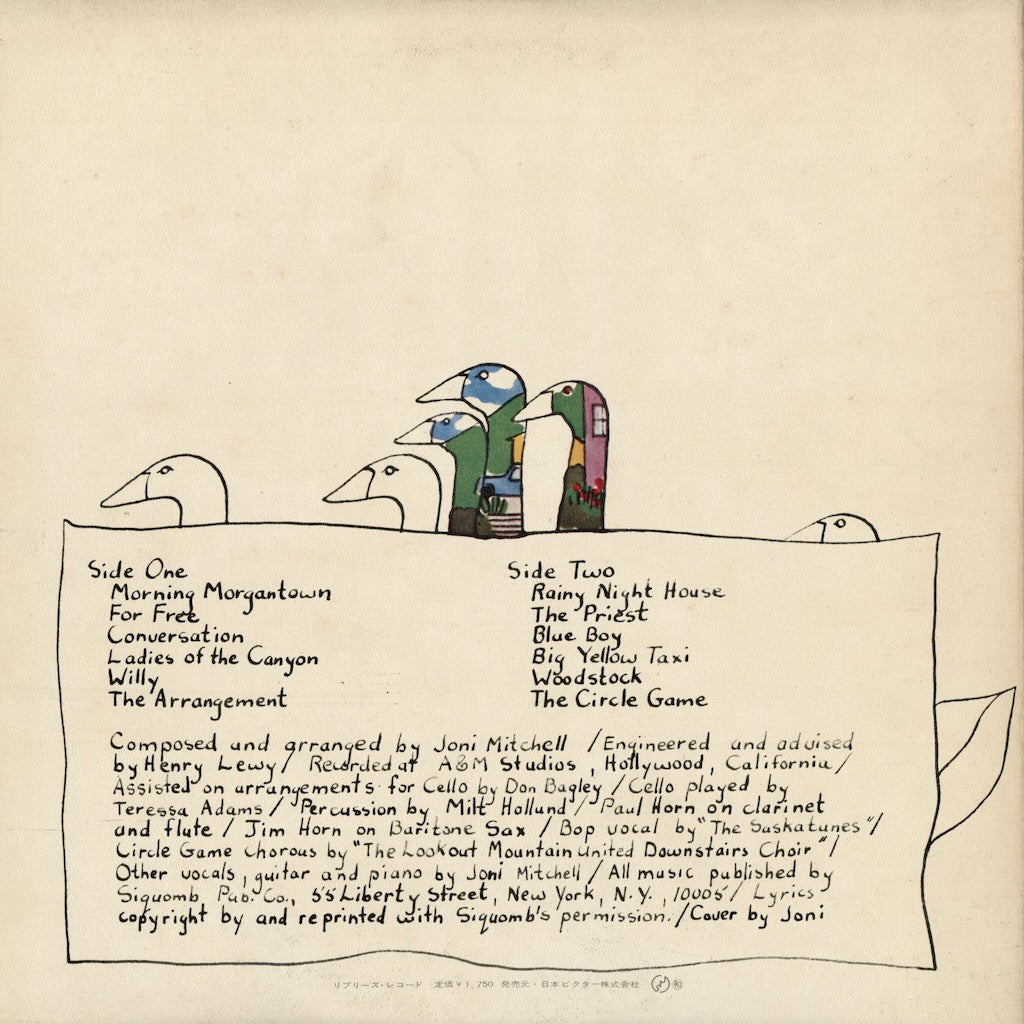 Side One
Morning Morgantown
For Free
Conversation
Ladies of the Canyon
Willy
The Arrangement
Side Two
Rainy Night House
The Priest
Blue Boy
Big Yellow Taxi
Woodstock
The Circle Game
Composed and arranged by Joni Mitchell / Engineered and advised
by Henry Lewy / Recorded at A&M Studios, Hollywood, California /
Assisted on arrangements for Cello by Don Bagley / Cello played by
Teressa Adams / Percussion by Milt Holland / Paul Horn on clarinet
and flute / Jim Horn on Baritone Sax / Bop vocal by "The Saskatunes" /
Circle Game chorous by "The Lookout Mountain United Downstairs Choir" /
Other vocals, guitar and piano by Joni Mitchell / All music published by
Siquomb Pub. Co., 55 Liberty Street, New York, N.Y., 10005 / Lyrics
copyright by and reprinted with Siquomb's permission. / Cover by Joni
リプリーズ・レコード 定価¥1,750 発売元・日本ビクター株式会社